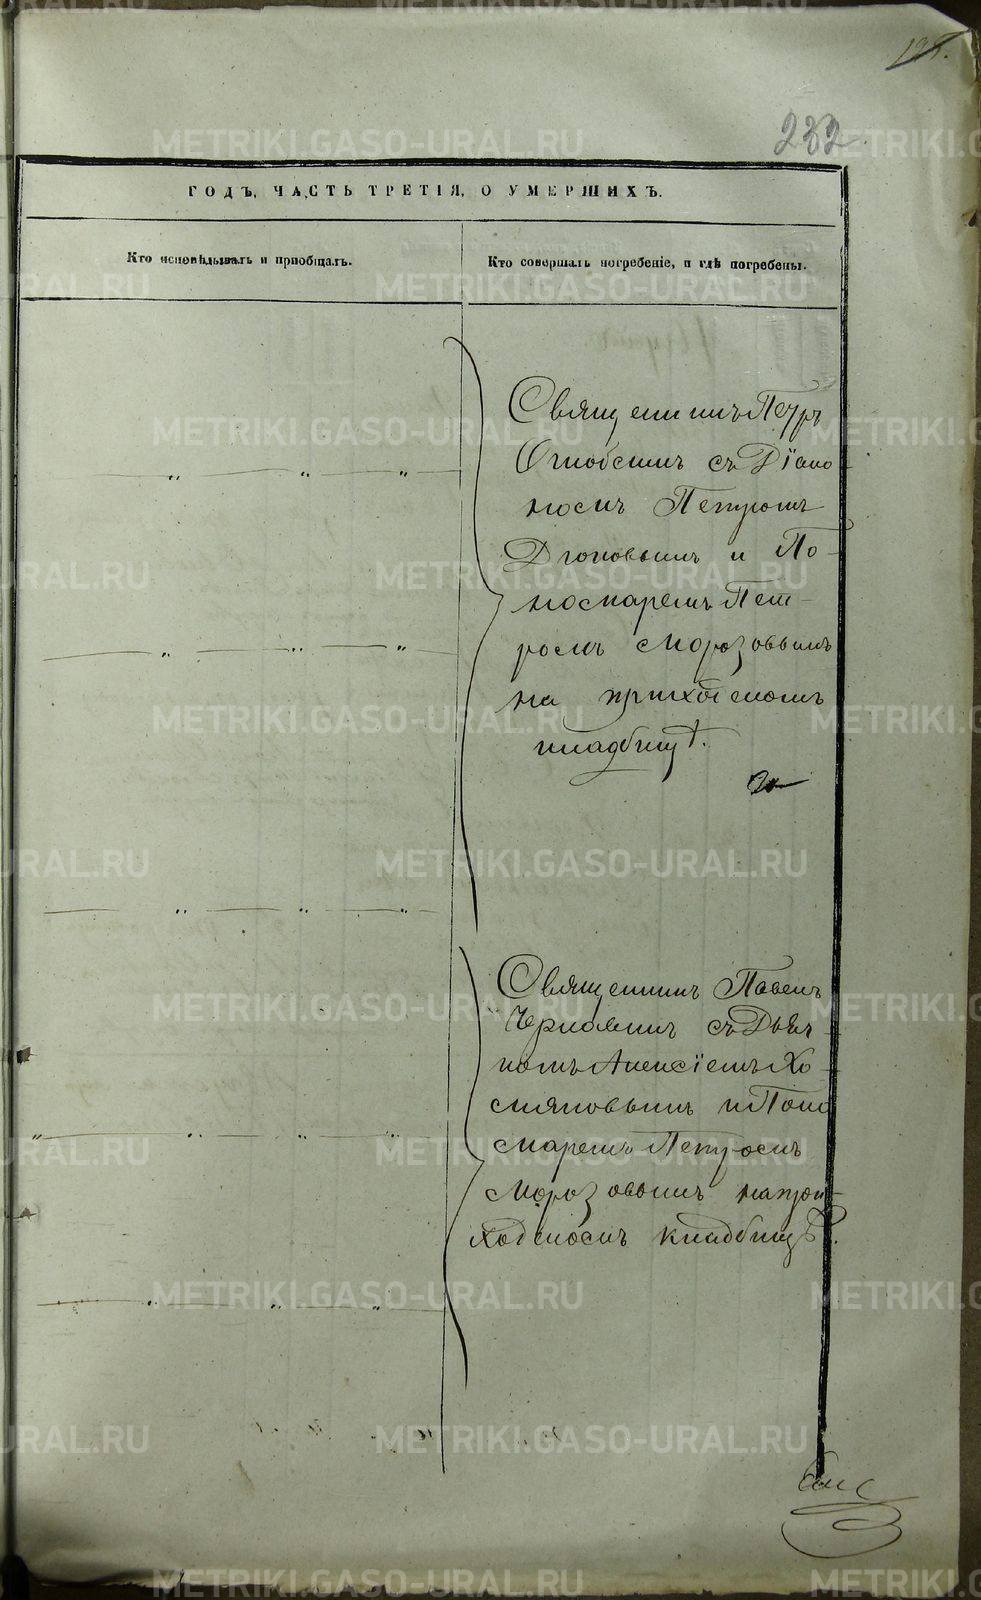 232
ГОДЪ, ЧАСТЬ ТРЕТІЯ, О УМЕРШИХЪ.
Кто исповѣдывалъ и пріобщалъ.
Кто совершалъ погребеніе, и гдѣ погребены.
Священникъ Петръ
съ Діако-
номъ Петромъ
Дягоновымъ и По-
номаремъ Пет-
ромъ Морозовымъ
на приходскомъ
кладбищѣ.
Священникъ Павелъ
Чернавинъ съ Дьяч-
комъ Алексіемъ Хо-
мяковымъ и Поно
маремъ Петромъ
Морозовымъ на при-
ходскомъ кладбищѣ.
METRIKI.GASO-URAL.RU